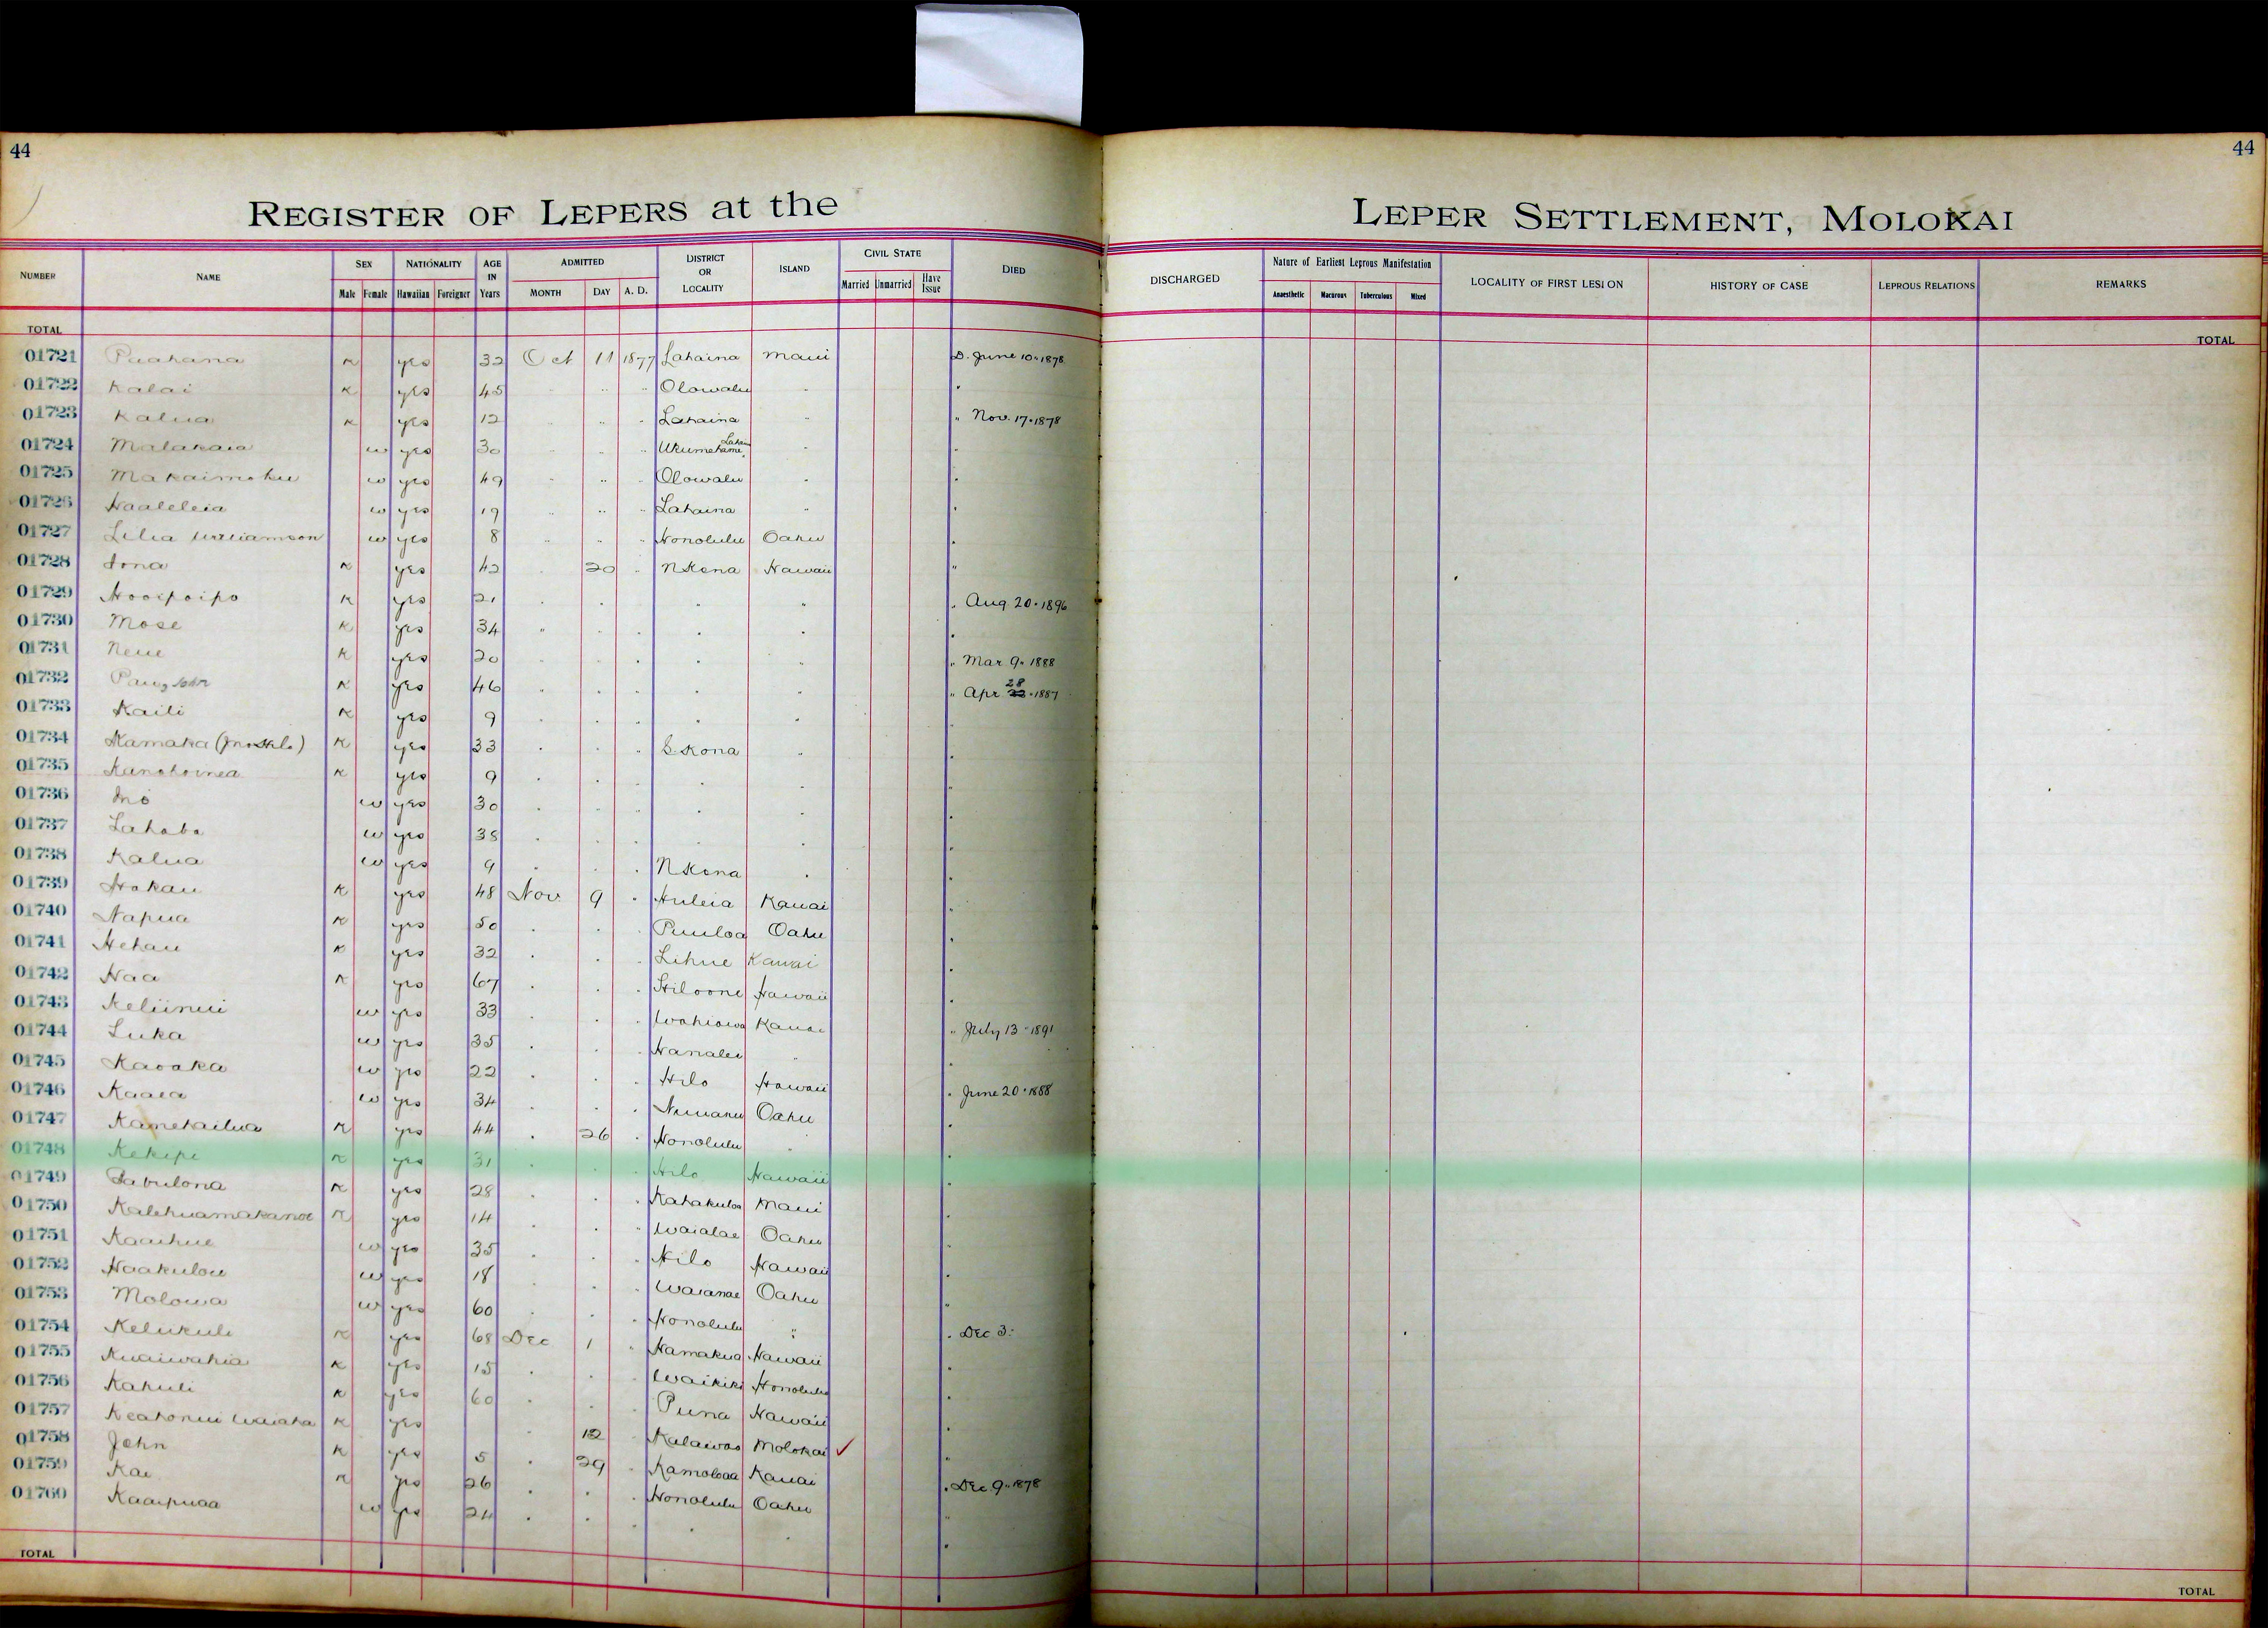 44
44
REGISTER OF LEPERS at the LEPER SETTLEMENT, MOLOKAI
NUMBER NAME SEX Male Female NATIONALITY Hawaiian Foreigner AGE IN Years ADMITTED MONTH DAY A. D. DISTRICT OR LOCALITY ISLAND CIVIL STATE Married Unmarried Have Issue DIED DISCHARGED Nature of Earliest Leprous Manifestation Anaesthetic Macurous Tuberculous Mixed LOCALITY OF FIRST LESION HISTORY OF CASE LEPROUS RELATIONS REMARKS
TOTAL TOTAL
01721 Puahana K yes 32 Oct 11 1877 Lahaina Maui D. June 10 " 1878
01722 Kalai K yes 45 " " Olowalu " "
01723 Kalua K yes 12 " " Lahaina " " Nov. 17 " 1878
01724 Malakaia w yes 30 " " Ukumehame, Lahain " "
01725 Makaimoku w yes 49 " " Olowalu " "
01726 Haaleleia w yes 19 " " " Lahaina " "
01727 Lilia Williamson w yes 8 " " " Honolulu Oahu "
01728 Iona K yes 42 " 20 " N Kona Hawaii "
01729 Hooipoipo K yes 21 " " " " " Aug. 20 " 1896
01730 Mose K yes 34 " " " " " "
01731 Neue K yes 20 " " " " " " Mar 9 " 1888
01732 John K yes 46 " " " " " " Apr 28 " 1887
01733 Kaili K yes 9 " " " " " "
01734 Kamaka K yes 33 " " " S. Kona " "
01735 K yes 9 " " " " "
01736 w yes 30 " " " " "
01737 w yes 38 " " " " "
01738 Kalua w yes 9 " " " N Kona " "
01739 Hokau K yes 48 Nov 9 " Huleia Kauai "
01740 Napua K yes 50 " " " Puuloa Oahu "
01741 Hehau K yes 32 " " " Lihue Kauai "
01742 Naa K yes 67 " " " Hiloone Hawaii "
01743 Keliinui w yes 33 " " " Wahiawa Kauai " July 13 " 1891
01744 Luka w yes 35 " " " Hanalei " "
01745 Kaoaka w yes 22 " " " Hilo Hawaii " June 20 " 1888
01746 Kaaea w yes 34 " " " Nuuanu Oahu "
01747 Kamekailua K yes 44 " 26 " Honolulu " "
01748 Kekipi K yes 31 " " " Hilo Hawaii "
01749 Sabulona K yes 28 " " " Kahakuloa Maui "
01750 Kalehuamakanoe K yes 14 " " " Waialae Oahu "
01751 Kaaihue w yes 35 " " " Hilo Hawaii "
01752 Haakulou w yes 18 " " " Waianae Oahu "
01753 Molowa w yes 60 " " " Honolulu " " Dec 3.
01754 K yes 68 Dec 1 " Hamakua Hawaii "
01755 Kuaiwahia K yes 15 " " Waikiki Honolulu "
01756 Kahuli K yes 60 " " Puna Hawaii "
01757 Keahonui Waiaha K yes " 12 Kalawao Molokai ✓ "
01758 John K yes 5 " 29 " Kamoloaa Kauai " Dec 9 " 1878
01759 Kai K yes 26 " " " Honolulu Oahu "
01760 Kaaipuaa w yes 24 " " " " " "
TOTAL TOTAL